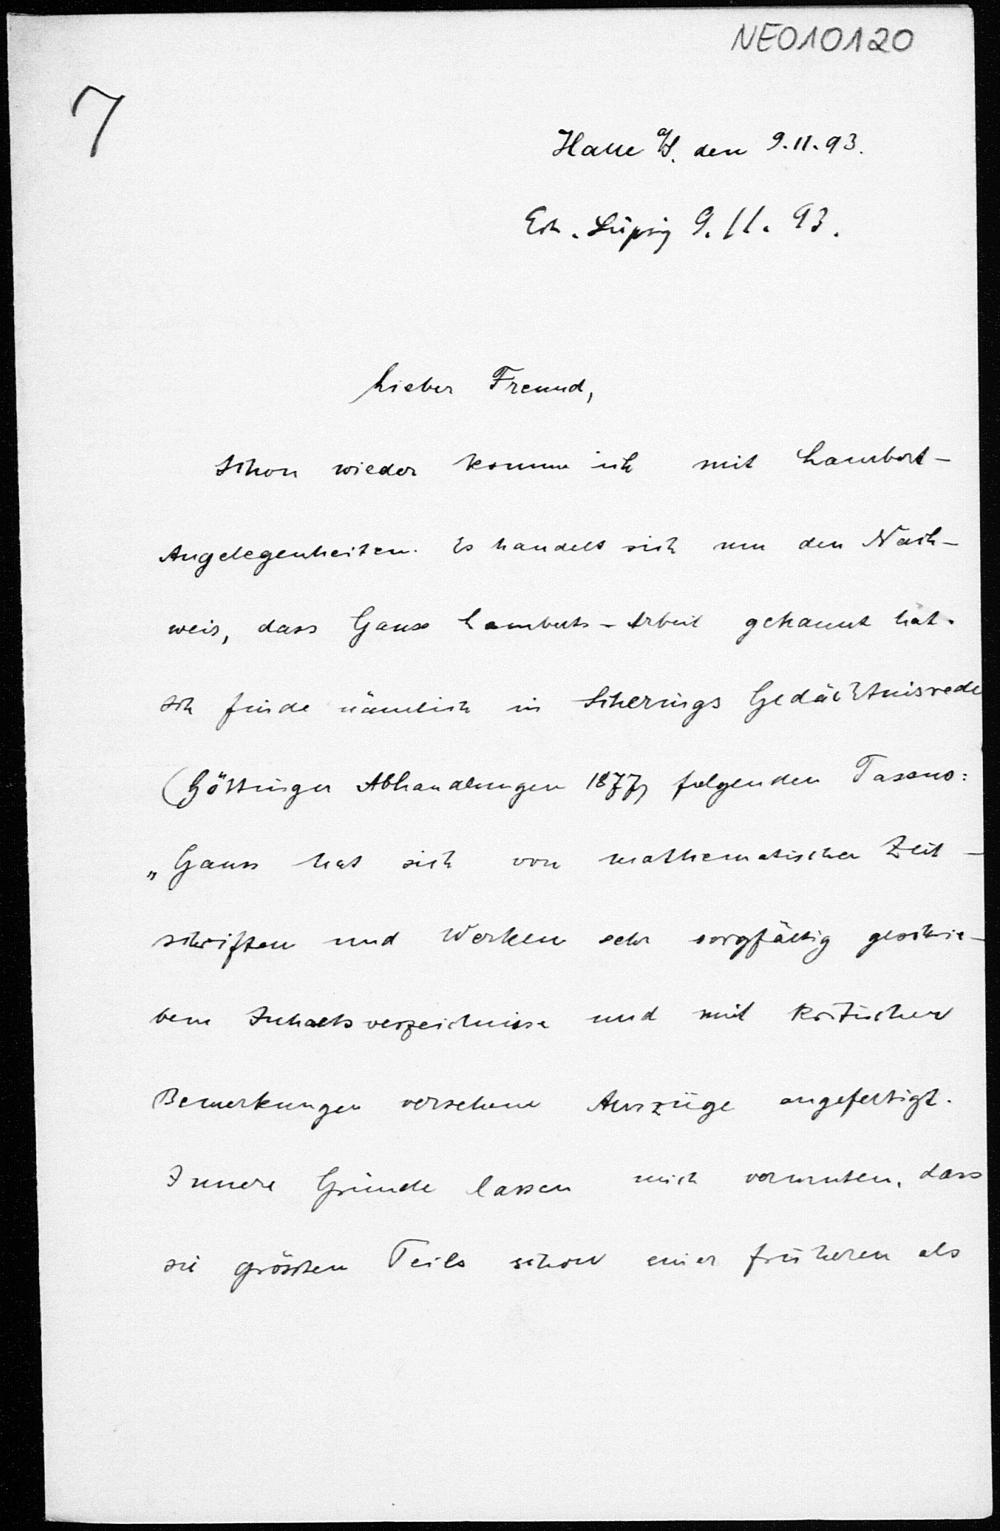 NE010120
7
Halle a/S. den 9.11.93.
Erh. Leipzig 9.11.93.
Lieber Freund,
Schon wieder komme ich mit Lambert-
Angelegenheiten. Es handelt sich um den Nach-
weis, dass Gauss Lamberts-Arbeit gekannt hat.
Ich finde nämlich in Scherings Gedächtnisrede
(Göttinger Abhandlungen 1877) folgenden Passus:
„Gauss hat sich von mathematischen Zeit-
schriften und Werken sehr sorgfältig geschrie-
bene Inhaltsverzeichnisse und mit kritischen
Bemerkungen versehene Auszüge angefertigt.
Innere Gründe lassen mich vermuten, dass
sie grössten Teils schon einer früheren als